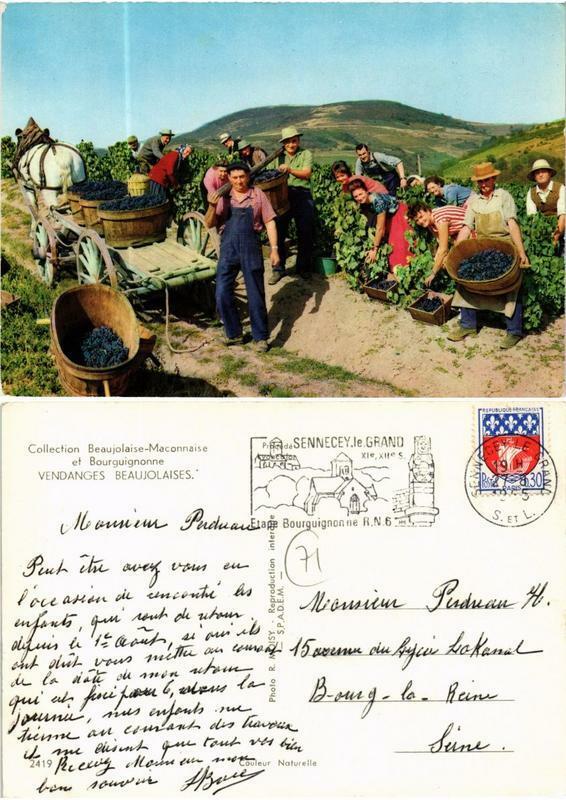 Collection Beaujolaise-Maconnaise
et Bourguignonne
VENDANGES BEAUJOLAISES.
SENNECEY.le.GRAND
XIe, XIIe S.
Etape Bourguignonne R.N.6
REPUBLIQUE FRANÇAISE
0,30
PARIS
SENNECEY-LE-GRAND
19 H
S. ET L.
71
Monsieur Perdreau
Peut être avez vous eu
l'occasion de rencontré les
enfants, qui sont de retour
depuis le 1er Août, si oui ils
ont dût vous mettre au courant
de la date de mon retour
qui est fixé pour le 6, dans la
journée, mes enfants me
tienne au courant des travaux
il me disent que tout vas bien
Recevez Monsieur mon
bon souvenir
Monsieur Perdreau H.
15 avenue du Lycée Lakanal
Bourg-la-Reine
Seine.
Photo R. - Reproduction interdite
S.P.A.D.E.M. -
2419
Couleur Naturelle